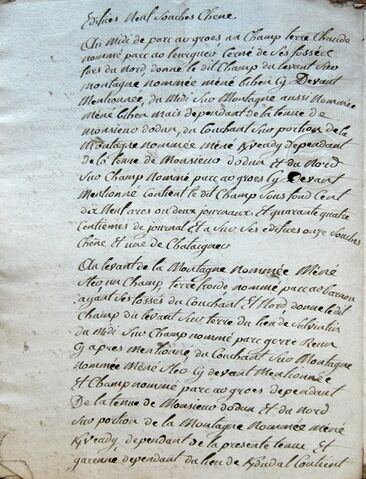 Edifices Neuf Souches Chene.
Au Midi de parc ao groes un Champ terre Chaude
nommé parc ao leurgues Cerné de Ses fossés
fors du nord donne le dit Champ du levant Sur
montagne nommée méné bihen Cy Devant
Mentionnée, du Midi Sur Montagne aussi Nommée
méné bihen mais dependant de la tenue de
monsieur dodun, du Couchant Sur portion de la
Montagne nommée méné Kveady dependant
de la tenue de Monsieur dodun et du Nord
Sur Champ Nommé parc ao groes Cy Devant
Mentionné Contient le dit Champ Sous fond Cent
dix Neuf ares ou deux journaux et quarante quatre
Centiemes de journal Et a Sur Ses edifices onze Souches
Chêne et une de Chataignier
Au levant de la Montagne nommée Méné
Aeo un Champ terre froide nommé parc ao
ayant Ses fosses du Couchant Et Nord donne le dit
Champ du levant Sur terre du lieu de
du Midi Sur Champ nommé parc
Cy après mentionné du Couchant Sur Montagne
nommée Méné Aeo Cy devant Mentionnée
et Champ nommé parc ao groes dependant
De la tenue de Monsieur dodun Et du nord
Sur portion de la Montagne Nommée méné
Kveady dependant de la presente tenue Et
garenne dependant du lieu de Contient